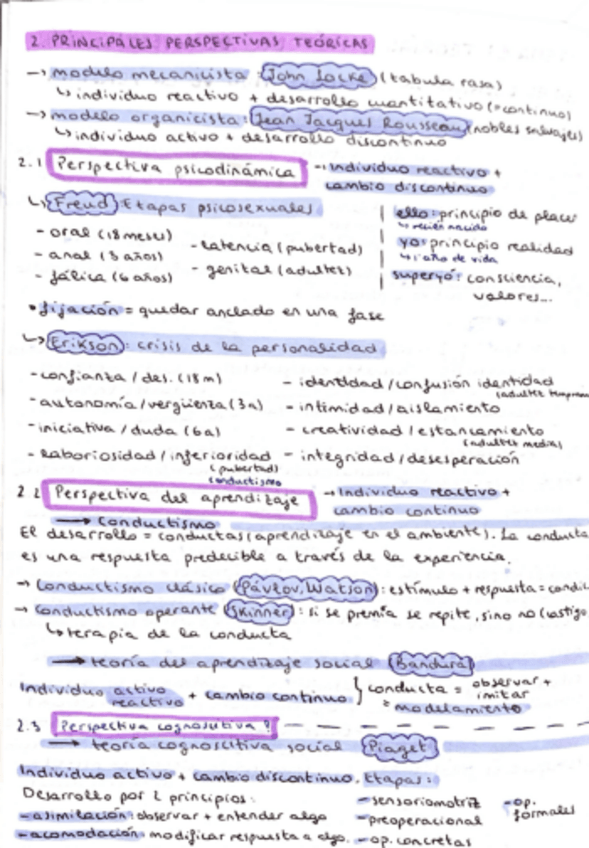 2. PRINCIPALES PERSPECTIVAS TEÓRICAS
→ modelo mecanicista: John Locke (tabula rasa)
↳ individuo reactivo + desarrollo cuantitativo (=continuo)
→ modelo organicista: Jean Jacques Rousseau (nobles salvajes)
↳ individuo activo + desarrollo discontinuo
2.1 Perspectiva psicodinámica → individuo reactivo +
cambio discontinuo
↳ Freud: Etapas psicosexuales
- oral (18 meses)
- anal (3 años)
- fálica (6 años)
- latencia (pubertad)
- genital (adultez)
ello: principio de placer
↳ recién nacido
yo: principio realidad
↳ 1 año de vida
superyó: consciencia,
valores...
• fijación = quedar anclado en una fase
↳ Erikson: crisis de la personalidad
- confianza / des. (18m)
- autonomía / vergüenza (3a)
- iniciativa / duda (6a)
- laboriosidad / inferioridad
(pubertad)
- identidad / confusión identidad
(adultez tempran
- intimidad / aislamiento
- creatividad / estancamiento
(adultez media)
- integridad / desesperación
conductismo
2.2 Perspectiva del aprendizaje → individuo reactivo +
cambio continuo
→ Conductismo
El desarrollo = conductas (aprendizaje en el ambiente). La conducta
es una respuesta predecible a través de la experiencia.
→ Conductismo clásico (Pávlov, Watson): estímulo + respuesta = condic
→ Conductismo operante (Skinner): si se premia se repite, sino no (castigo
↳ terapia de la conducta
→ teoría del aprendizaje social (Bandura)
Individuo activo
reactivo + cambio continuo } conducta = observar +
imitar
= modelamiento
2.3 Perspectiva cognoscitiva?
→ teoría cognoscitiva social Piaget
Individuo activo + cambio discontinuo. Etapas:
Desarrollo por 2 principios:
- asimilación: observar + entender algo
- acomodación: modificar respuesta a algo.
- sensoriomotriz
- preoperacional
- op. concretas
- op.
formales